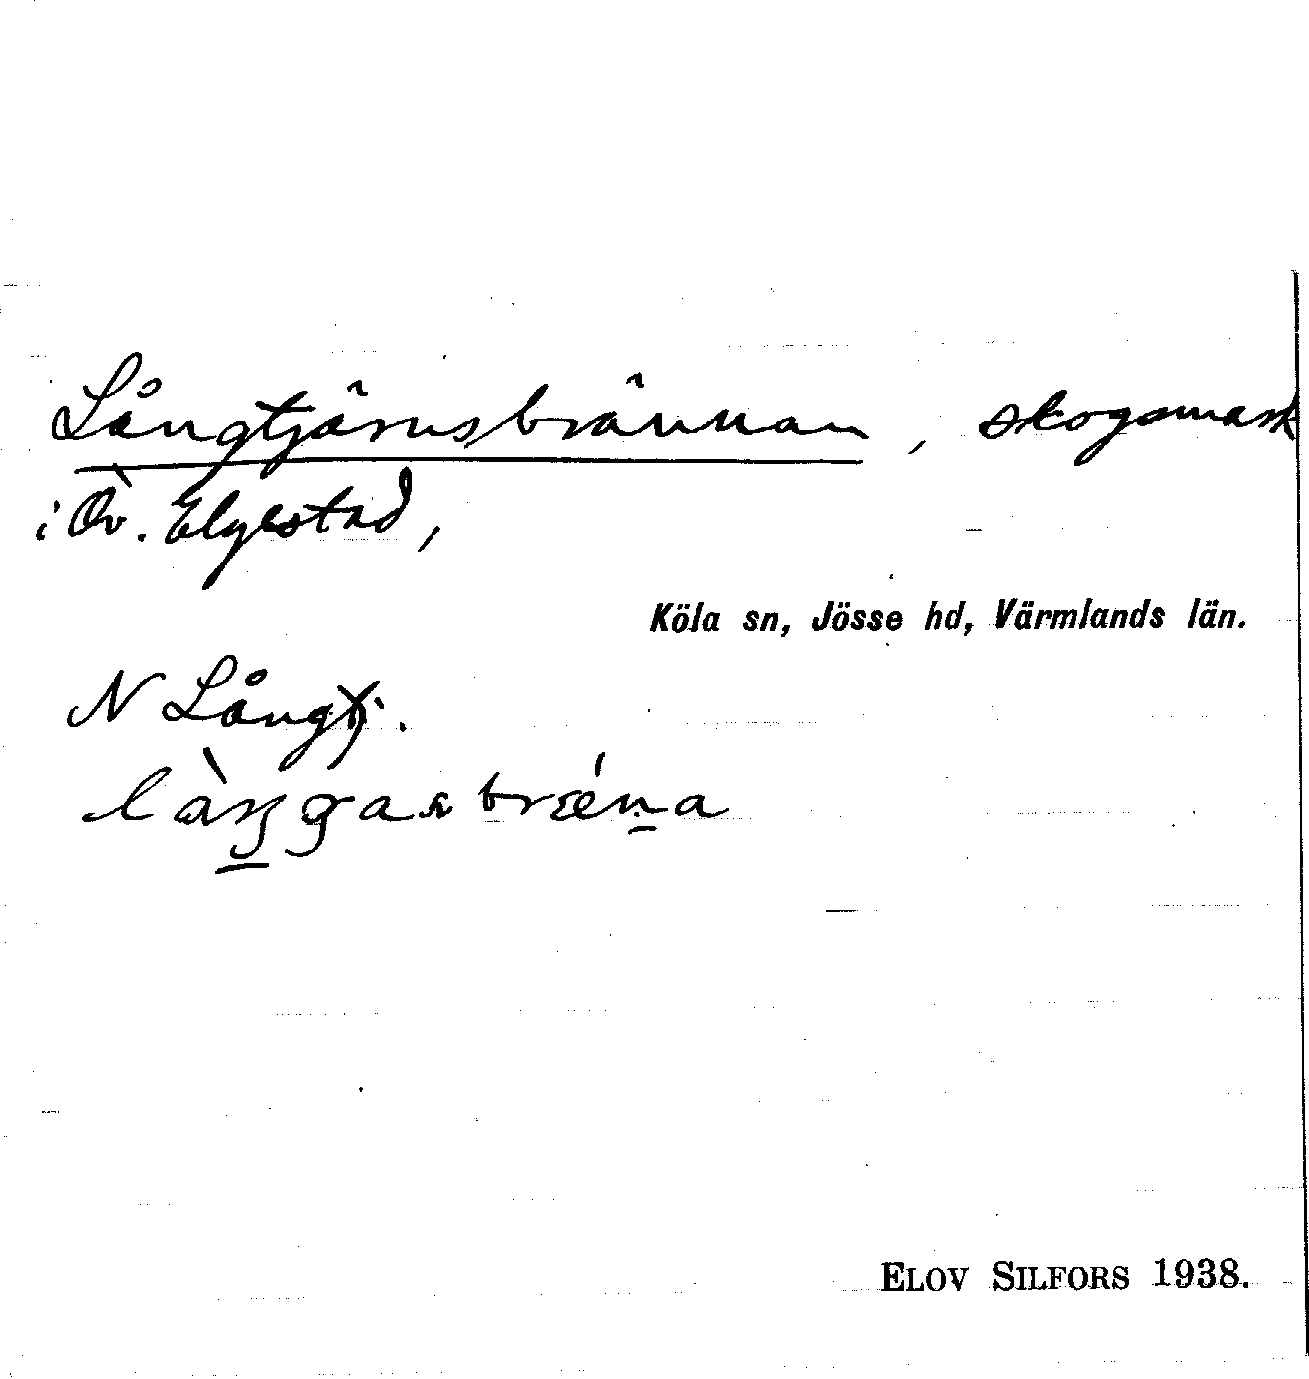 Långtjärnsbrännan, skogsmark
i Öv. Elgestad,
Köla sn, Jösse hd, Värmlands län.
N Långtj.
ELOV SILFORS 1938.